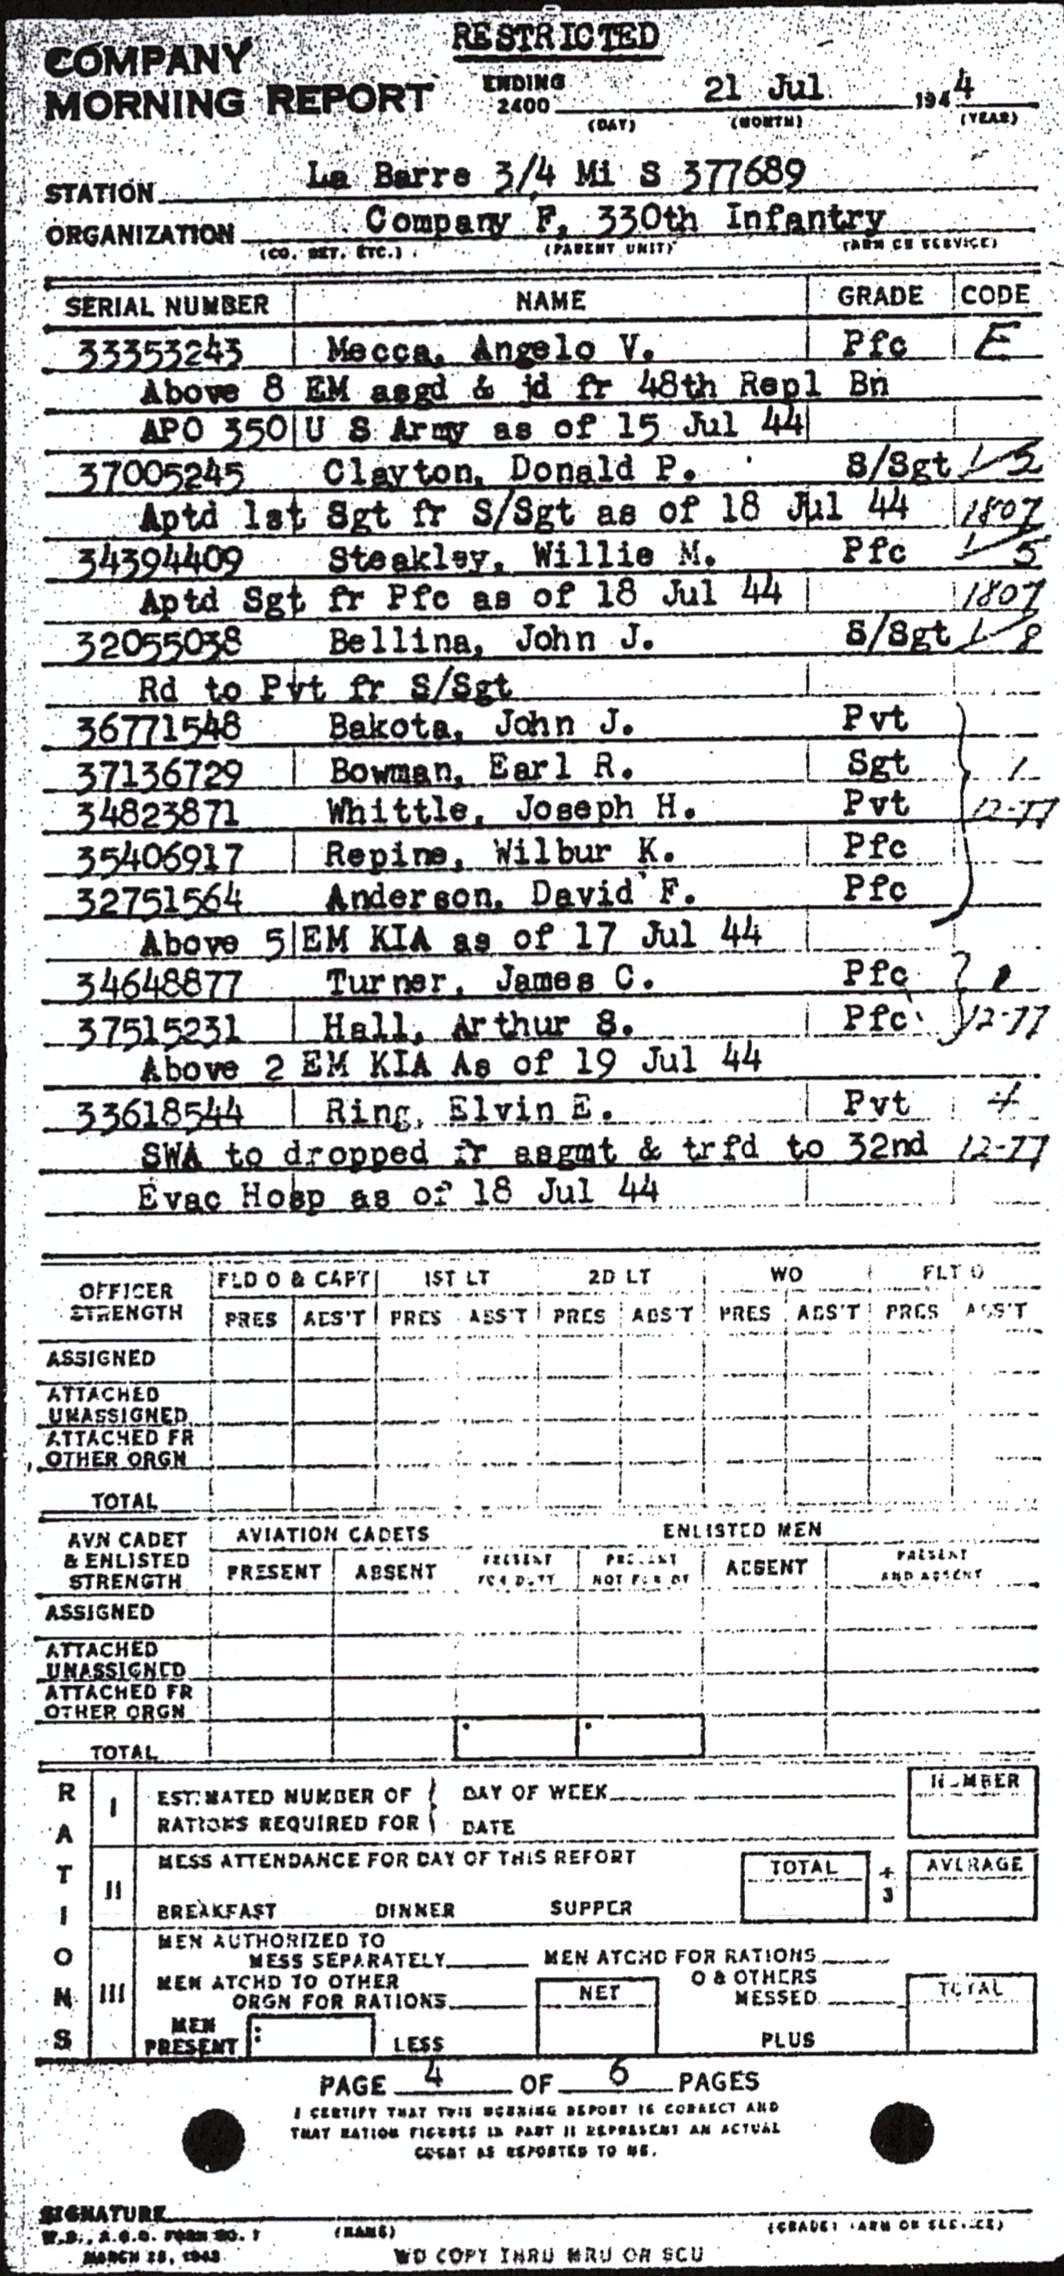 RESTRICTED
COMPANY
MORNING REPORT
ENDING
2400
21 Jul
1944
(DAY) (MONTH) (YEAR)
STATION La Barre 3/4 Mi S 377689
ORGANIZATION Company F, 330th Infantry
(CO. DET. ETC.) (PARENT UNIT) (ARM OR SERVICE)
SERIAL NUMBER NAME GRADE CODE
33353243 Mecca, Angelo V. Pfc E
Above 8 EM asgd & jd fr 48th Repl Bn
APO 350 U S Army as of 15 Jul 44
37005245 Clayton, Donald P. S/Sgt 1-5
Aptd 1st Sgt fr S/Sgt as of 18 Jul 44 1807
34394409 Steakley, Willie M. Pfc 1 5
Aptd Sgt fr Pfc as of 18 Jul 44 1807
32055038 Bellina, John J. S/Sgt 1 8
Rd to Pvt fr S/Sgt
36771548 Bakota, John J. Pvt
37136729 Bowman, Earl R. Sgt 1
34823871 Whittle, Joseph H. Pvt 12-77
35406917 Repine, Wilbur K. Pfc
32751564 Anderson, David F. Pfc
Above 5 EM KIA as of 17 Jul 44
34648877 Turner, James C. Pfc
37515231 Hall, Arthur S. Pfc 12-77
Above 2 EM KIA As of 19 Jul 44
33618544 Ring, Elvin E. Pvt 4
SWA to dropped fr asgmt & trfd to 32nd 12-77
Evac Hosp as of 18 Jul 44
OFFICER STRENGTH FLD O & CAPT 1ST LT 2D LT WO FLT O
PRES ABS'T PRES ABS'T PRES ABS'T PRES ABS'T PRES ABS'T
ASSIGNED
ATTACHED
UNASSIGNED
ATTACHED FR
OTHER ORGN
TOTAL
AVN CADET
& ENLISTED
STRENGTH
AVIATION CADETS ENLISTED MEN
PRESENT ABSENT PRESENT FOR DUTY PRESENT NOT FOR DY ABSENT PRESENT AND ABSENT
ASSIGNED
ATTACHED
UNASSIGNED
ATTACHED FR
OTHER ORGN
TOTAL
RATIONS
I ESTIMATED NUMBER OF DAY OF WEEK NUMBER
RATIONS REQUIRED FOR DATE
II MESS ATTENDANCE FOR DAY OF THIS REPORT TOTAL ÷ 3 AVERAGE
BREAKFAST DINNER SUPPER
III MEN AUTHORIZED TO
MESS SEPARATELY MEN ATCHD FOR RATIONS
MEN ATCHD TO OTHER
ORGN FOR RATIONS NET O & OTHERS
MESSED TOTAL
MEN
PRESENT LESS PLUS
PAGE 4 OF 6 PAGES
I CERTIFY THAT THIS MORNING REPORT IS CORRECT AND
THAT RATION FIGURES IN PART II REPRESENT AN ACTUAL
COUNT AS REPORTED TO ME.
SIGNATURE
W.D., A.G.O. FORM NO. 1 (NAME) (GRADE: ARM OR SERVICE)
MARCH 25, 1943
WD COPY THRU MRU OR SCU